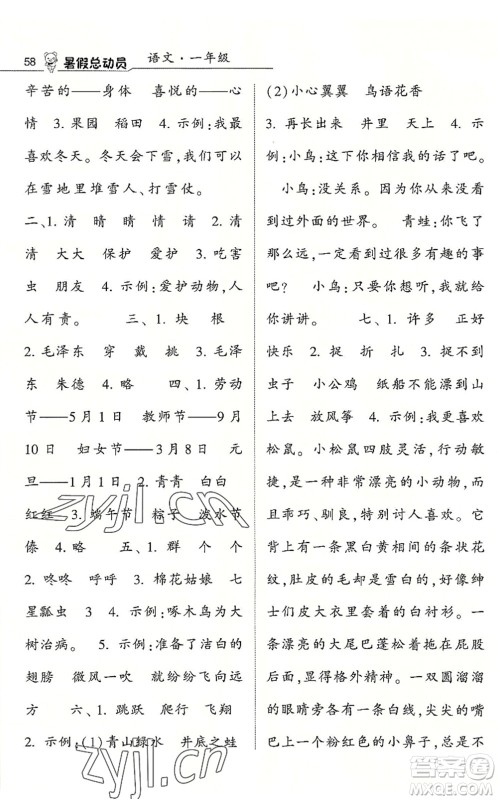 58 暑假总动员 语文·一年级
辛苦的——身体 喜悦的——心
情 3. 果园 稻田 4. 示例:我最
喜欢冬天。冬天会下雪,我可以
在雪地里堆雪人、打雪仗。
二、1. 清 晴 睛 情 请 2. 清
清 大大 保护 爱护 3. 吃害
虫 朋友 4. 示例:爱护动物,人
人有责。 三、1. 块 根
2. 毛泽东 穿 戴 挑 3. 毛泽
东 朱德 4. 略 四、1. 劳动
节——5月1日 教师节——9月
10日 妇女节——3月8日 元
旦——1月1日 2. 青青 白白
红红 3. 端午节 粽子 泼水节
傣 4. 略 五、1. 群 个 个
2. 咚咚 呼呼 3. 棉花姑娘 七
星瓢虫 4. 示例:啄木鸟为大
树治病。 5. 示例:准备了洁白的
翅膀 微风一吹 就纷纷飞向四
方 六、1. 跳跃 爬行 飞翔
2. 示例:(1)青山绿水 井底之蛙
(2)小心翼翼 鸟语花香
3. 再长出来 井里 天上 4. 示
例:小鸟:这下你相信我的话了吧。
小鸟:没关系。因为你没看到
过外面的世界。 青蛙:你飞了
那么远,一定看到很多有趣的事
情。 小鸟:只要你想听,我就给
你讲讲。 七、1. 许多 正好
快乐 2. 捉 折 扎 3. 捉不到
虫子 小公鸡 纸船不能漂到山
上去 放风筝 4. 示例:我喜欢
松鼠。小松鼠四肢灵活,行动敏
捷,是一种漂亮的小动物,而
且乖巧、驯良,特别讨人喜欢。它
的背上有一条黑白黄相间的条状花
纹,肚皮的毛却是雪白的,好像绅
士们正步衣服中的白衬衫。
一条漂亮的大尾巴蓬松在屁股
后面,显得格外精神。一双圆溜溜
的眼睛旁各有一条白线,尖尖的嘴
巴上一个粉红色的小鼻子,总是不
zyjl.cn
zyjl.cn
答案圈
MXQE.COM